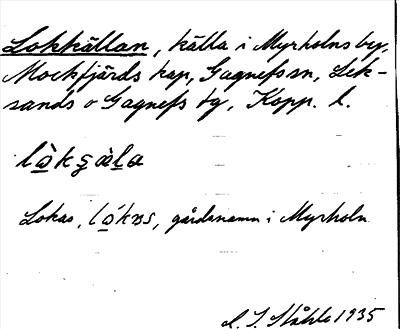 Lokkällan, källa i Myrholns by,
Mockfjärds kap, Gagnefs sn, Lek-
sands o Gagnefs tg, Kopp. l.
lò̠kʂàḻa
Lokas, ló̠kɒs, gårdsnamn i Myrholn
C. I. Ståhle 1935